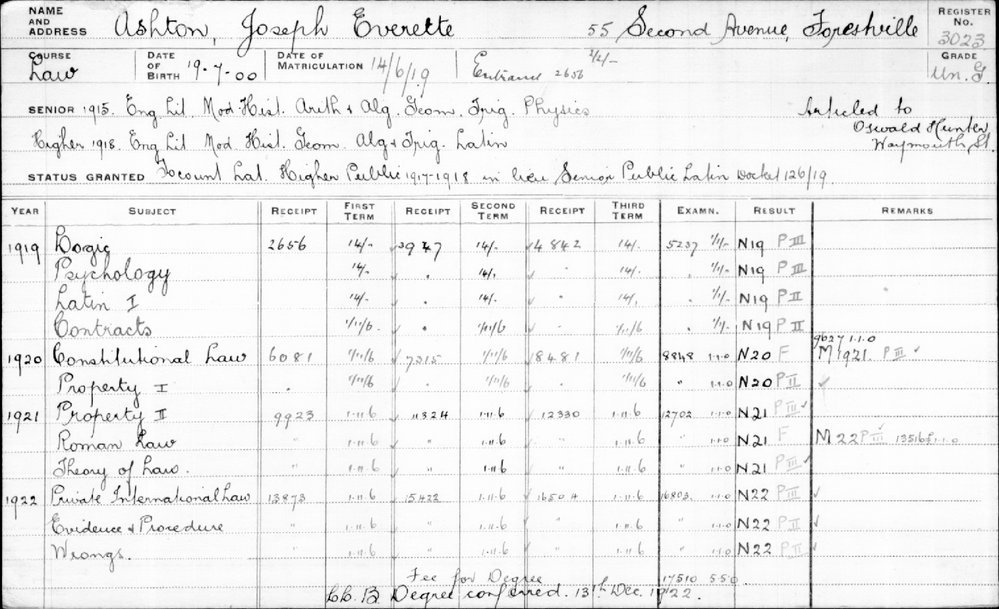 NAME AND ADDRESS Ashton, Joseph Everette 55 Second Avenue, Forestville REGISTER No. 3023
COURSE Law DATE OF BIRTH 19-7-00 DATE OF MATRICULATION 14/6/19 Entrance 2656 2/2/- GRADE Un. G.
SENIOR 1915. Eng Lit. Mod. Hist. Arith & Alg. Geom. Trig. Physics Articled to
Oswald Hunter,
Higher 1918. Eng Lit Mod. Hist. Geom. Alg & Trig. Latin Waymouth St.
STATUS GRANTED To count Lat. Higher Public 1917-1918 in lieu Senior Public Latin Docket 126/19
YEAR SUBJECT RECEIPT FIRST TERM RECEIPT SECOND TERM RECEIPT THIRD TERM EXAMN. RESULT REMARKS
1919 Logic 2656 14/- 3947 14/- 4842 14/- 5237 1/1/- N19 P III
Psychology 14/- 14/- 14/- 1/1/- N19 P III
Latin I 14/- 14/- 14/- 1/1/- N19 P II
Contracts 1/11/6 1/11/6 1/11/6 1/1/- N19 P II
9627 1.1.0
1920 Constitutional Law 6081 1/11/6 7315 1/11/6 8481 1/11/6 8848 1.1.0 N20 F M1921. P III ✓
Property I 1/11/6 1/11/6 1/11/6 " 1.1.0 N20 P II ✓
1921 Property II 9923 1.11.6 11324 1.11.6 12330 1.11.6 12702 1.1.0 N21 P III ✓
Roman Law " 1.11.6 " 1.11.6 " 1.11.6 " 1.1.0 N21 F M22 P III ✓ 13516 £1.1.0
Theory of Law. " 1.11.6 " 1.11.6 " 1.11.6 " 1.1.0 N21 P III ✓
1922 Private International Law 13873 1.11.6 15422 1.11.6 16504 1.11.6 16803 1.1.0 N22 P III ✓
Evidence & Procedure " 1.11.6 " 1.11.6 " 1.11.6 " 1.1.0 N22 P II ✓
Wrongs. 1.11.6 " 1.11.6 " 1.11.6 " 1.1.0 N22 P II ✓
Fee for Degree 17510 5.5.0.
LL.B. Degree conferred. 13th Dec. 1922.